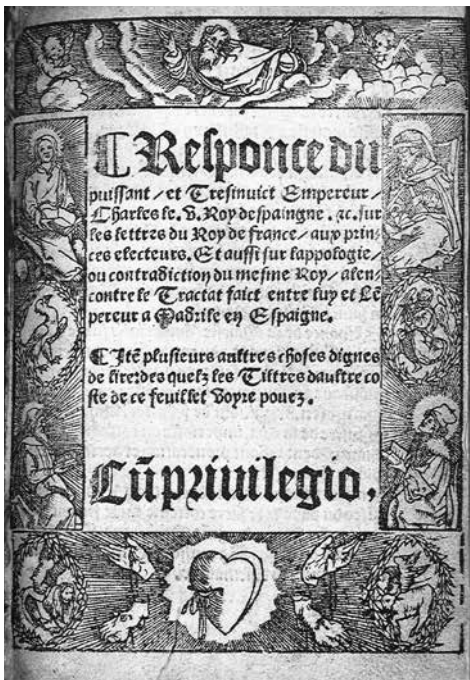 ¶ Responce du
puissant / et Tresinuict Empereur /
Charles le. V. Roy despaingne. ⁊c. sur
les lettres du Roy de france / aux prin-
ces electeurs. Et aussi sur lappologie /
ou contradiction du mesme Roy / alen-
contre le Tractat faict entre luy et Lē
pereur a Madrile en Espaigne.
¶ Itē plusieurs aultres choses dignes
de lire: des quelz les Tiltres daultre co
ste de ce feuillet Voyre pouez.
Cū priuilegio.